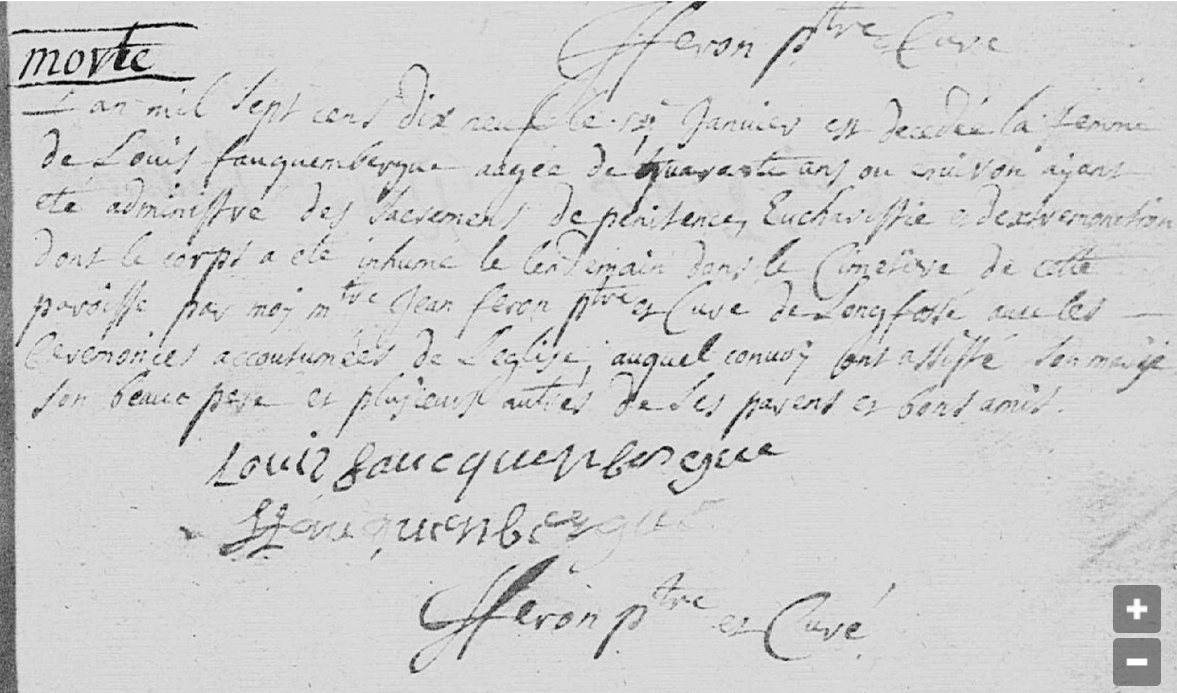 fferon ptre et Curé
morte
L'an mil sept cens dix neuf le janvier est decedée la femme
de Louis fauquembergue aagée de quarante ans ou environ aÿant
eté administré des sacremens de penitence, Eucharistie et dextremonction
dont le corps a eté inhumé le lendemain dans le Cimetiere de cette
paroisse par moÿ mtre Jean feron ptre et Curé de Longfossé avec les
Ceremonies accoutumées de Leglise, auquel convoÿ ont assisté son
son beau pere et plusieurs autres de ses parens et bons amis.
Louis faucquenbergue
fferon ptre et Curé
+
−